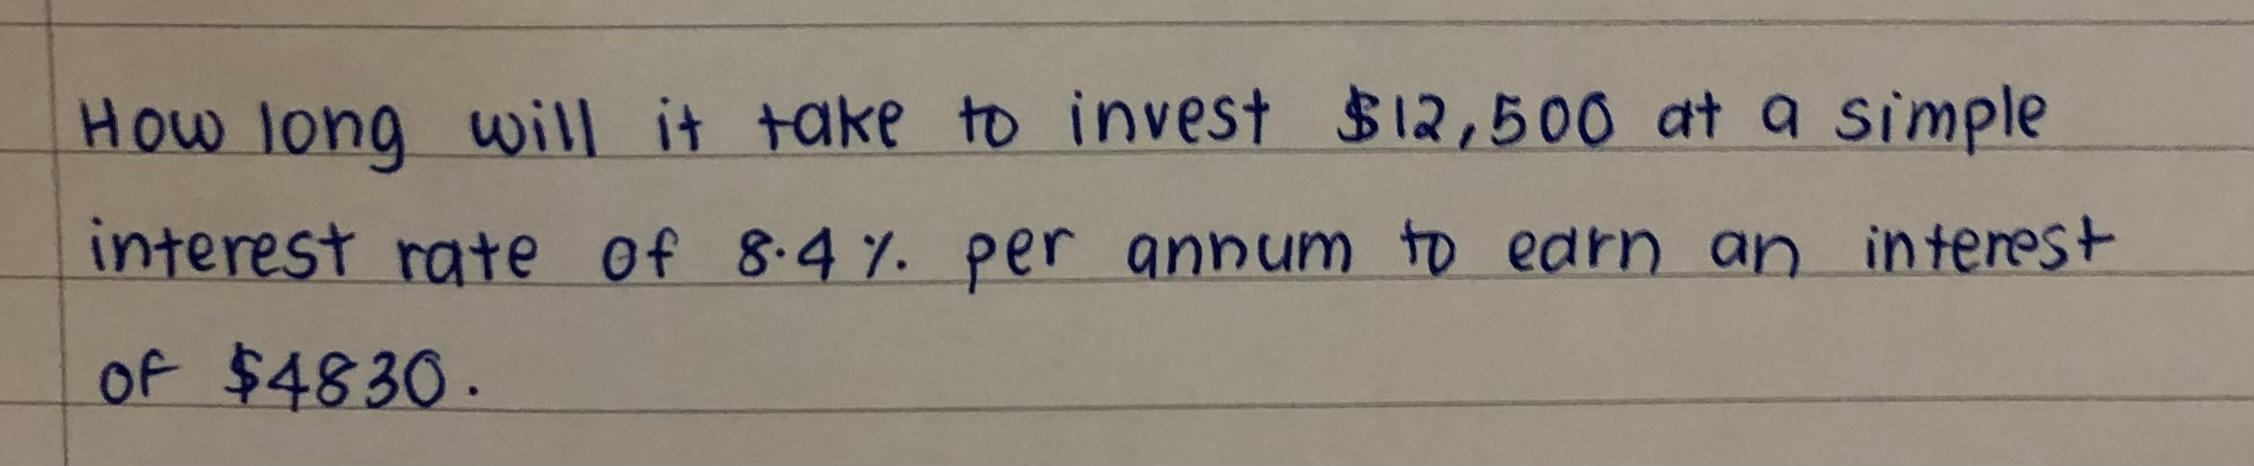 How long will it take to invest $12,500 at a simple
interest rate of 8.4% per annum to earn an interest
of $4830.